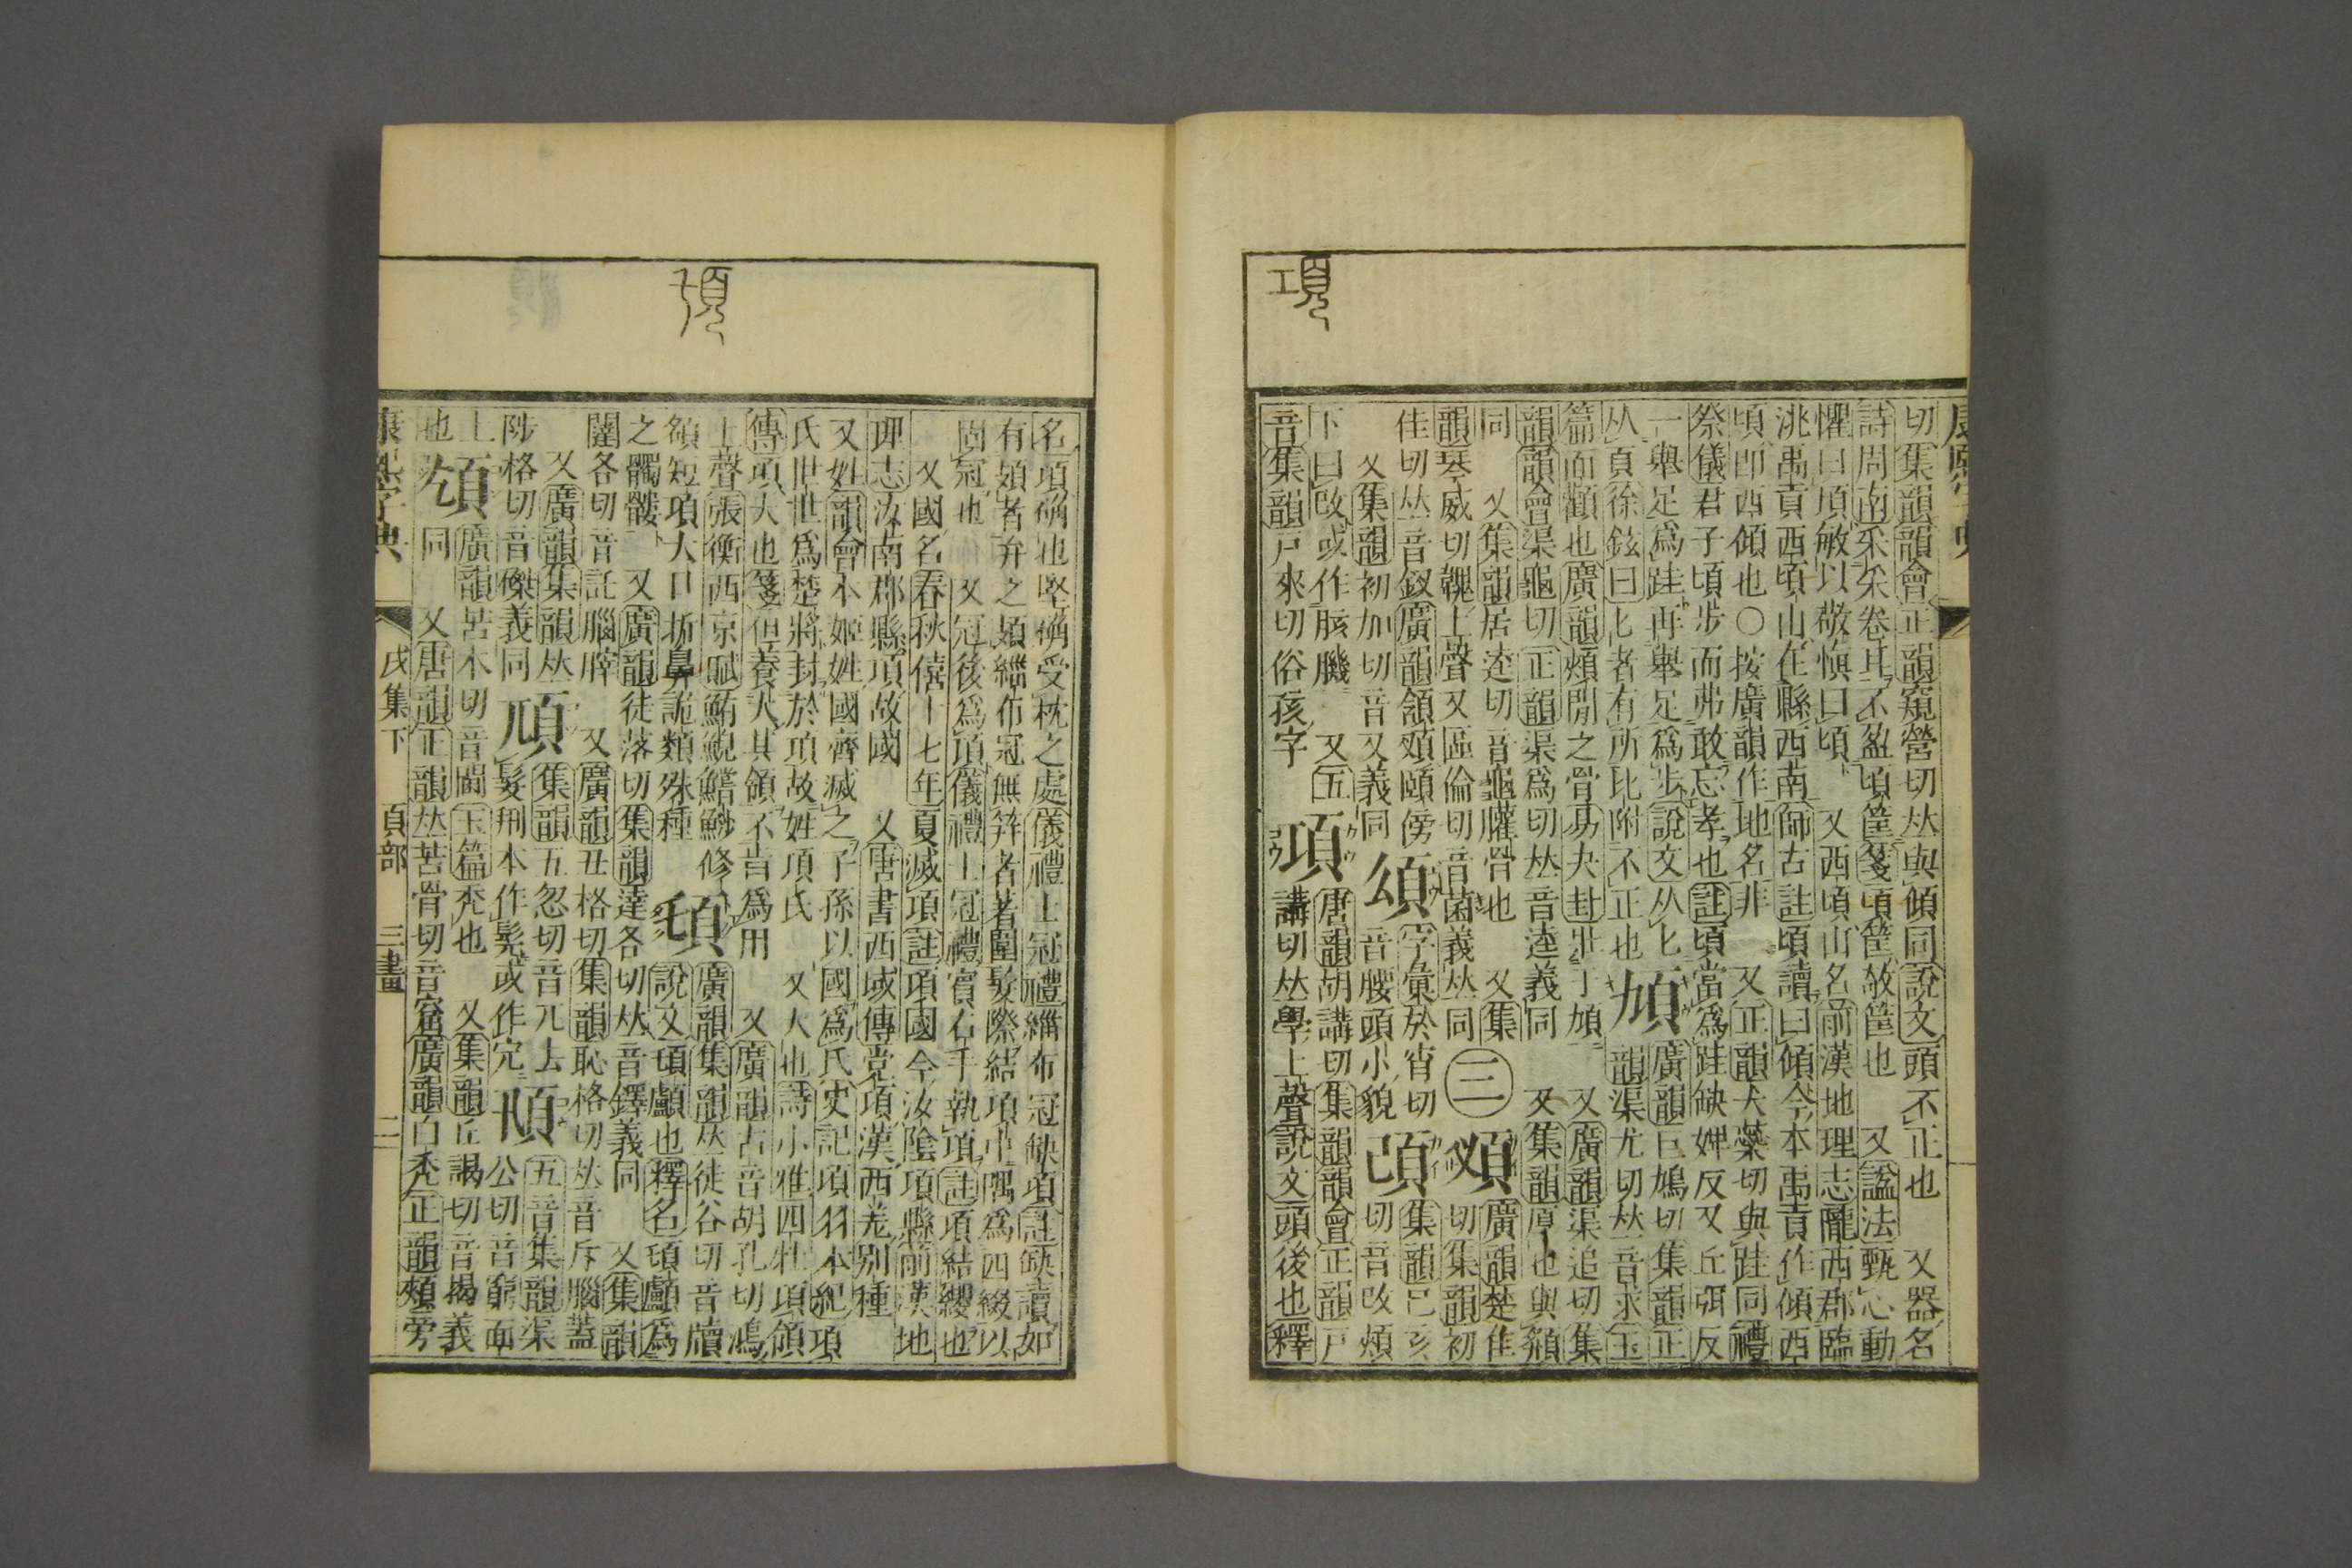 項
切集韻韻會正韻窺營切𠀤與傾同說文頭不正也 又器名
詩周南采采卷耳不盈頃筐箋頃筐敧筐也 又諡法甄心動
懼曰頃敏以敬愼曰頃 又西頃山名前漢地理志隴西郡臨
洮禹貢西頃山在縣西南師古註頃讀曰傾今本禹貢作傾西
頃卽西傾也○按廣韻作地名非 又正韻犬蘂切與跬同禮
祭儀君子頃步而弗敢忘孝也註頃當爲跬缺婢反又丘弭反
一舉足爲跬再舉足爲步說文从匕 頄 廣韻巨鳩切集韻正
从頁徐鉉曰匕者有所比附不正也 韻渠尤切𠀤音求玉
篇面顴也廣韻頰閒之骨易夬封壯于頄 又廣韻渠追切集
韻韻會渠龜切正韻渠爲切𠀤音逵義同 又集韻厚也與䫥
同 又集韻居逵切音龜䐪骨也 又集 廣韻楚佳
韻琴威切 上聲又區倫切音菌義𠀤同 三 切集韻初
佳切𠀤音釵廣韻頷 頤傍 字彙於宵切 集韻已亥
又集韻初加切音叉義同 音腰頭小貌 切音改頰
下曰 或作胲 又五 項 唐韻胡講切集韻韻會正韻戶
音集韻戶來切俗孩字 講切𠀤學上聲說文頭後也釋
名項确也堅确受枕之處儀禮士冠禮緇布冠缺項註缺讀如
有頍者弁之頍緇布冠無笄者著圍髮際結項中隅爲四綴以
固冠也 又冠後爲項儀禮士冠禮賓右手執項註項結纓也
又國名春秋僖十七年夏滅項註項國今汝陰項縣前漢地
理志汝南郡縣項故國 又唐書西域傳党項漢西羌別種
又姓韻會本姬姓國齊滅之子孫以國爲氏史記項羽本紀項
氏世世爲楚將封於項故姓項氏 又大也詩小雅四牡項領
傳項大也箋但養大其領不肯爲用 又廣韻古音胡孔切鴻
上聲張衡西京賦鮪鯢鱨魦修 䪴 廣韻集韻𠀤徒谷切音牘
額短項大口折鼻詭類殊種 說文䪴顱也釋名䪴顱爲
之髑髏 又廣韻徒落切集韻達各切𠀤音鐸義同 又集韻
闥各切音託腦 又廣韻丑格切集韻恥格切𠀤音斥腦蓋
又廣韻集韻𠀤 集韻五忽切音兀去 五音集韻渠
陟格切音磔義同 髮刑本作髡或作完 公切音窮面
上 廣韻苦本切音閫玉篇禿也 又集韻丘謁切音揭義
也 同 又唐韻正韻𠀤苦骨切音窟廣韻白禿正韻頰旁
康熙字典 戌集下 頁部 三畫 二